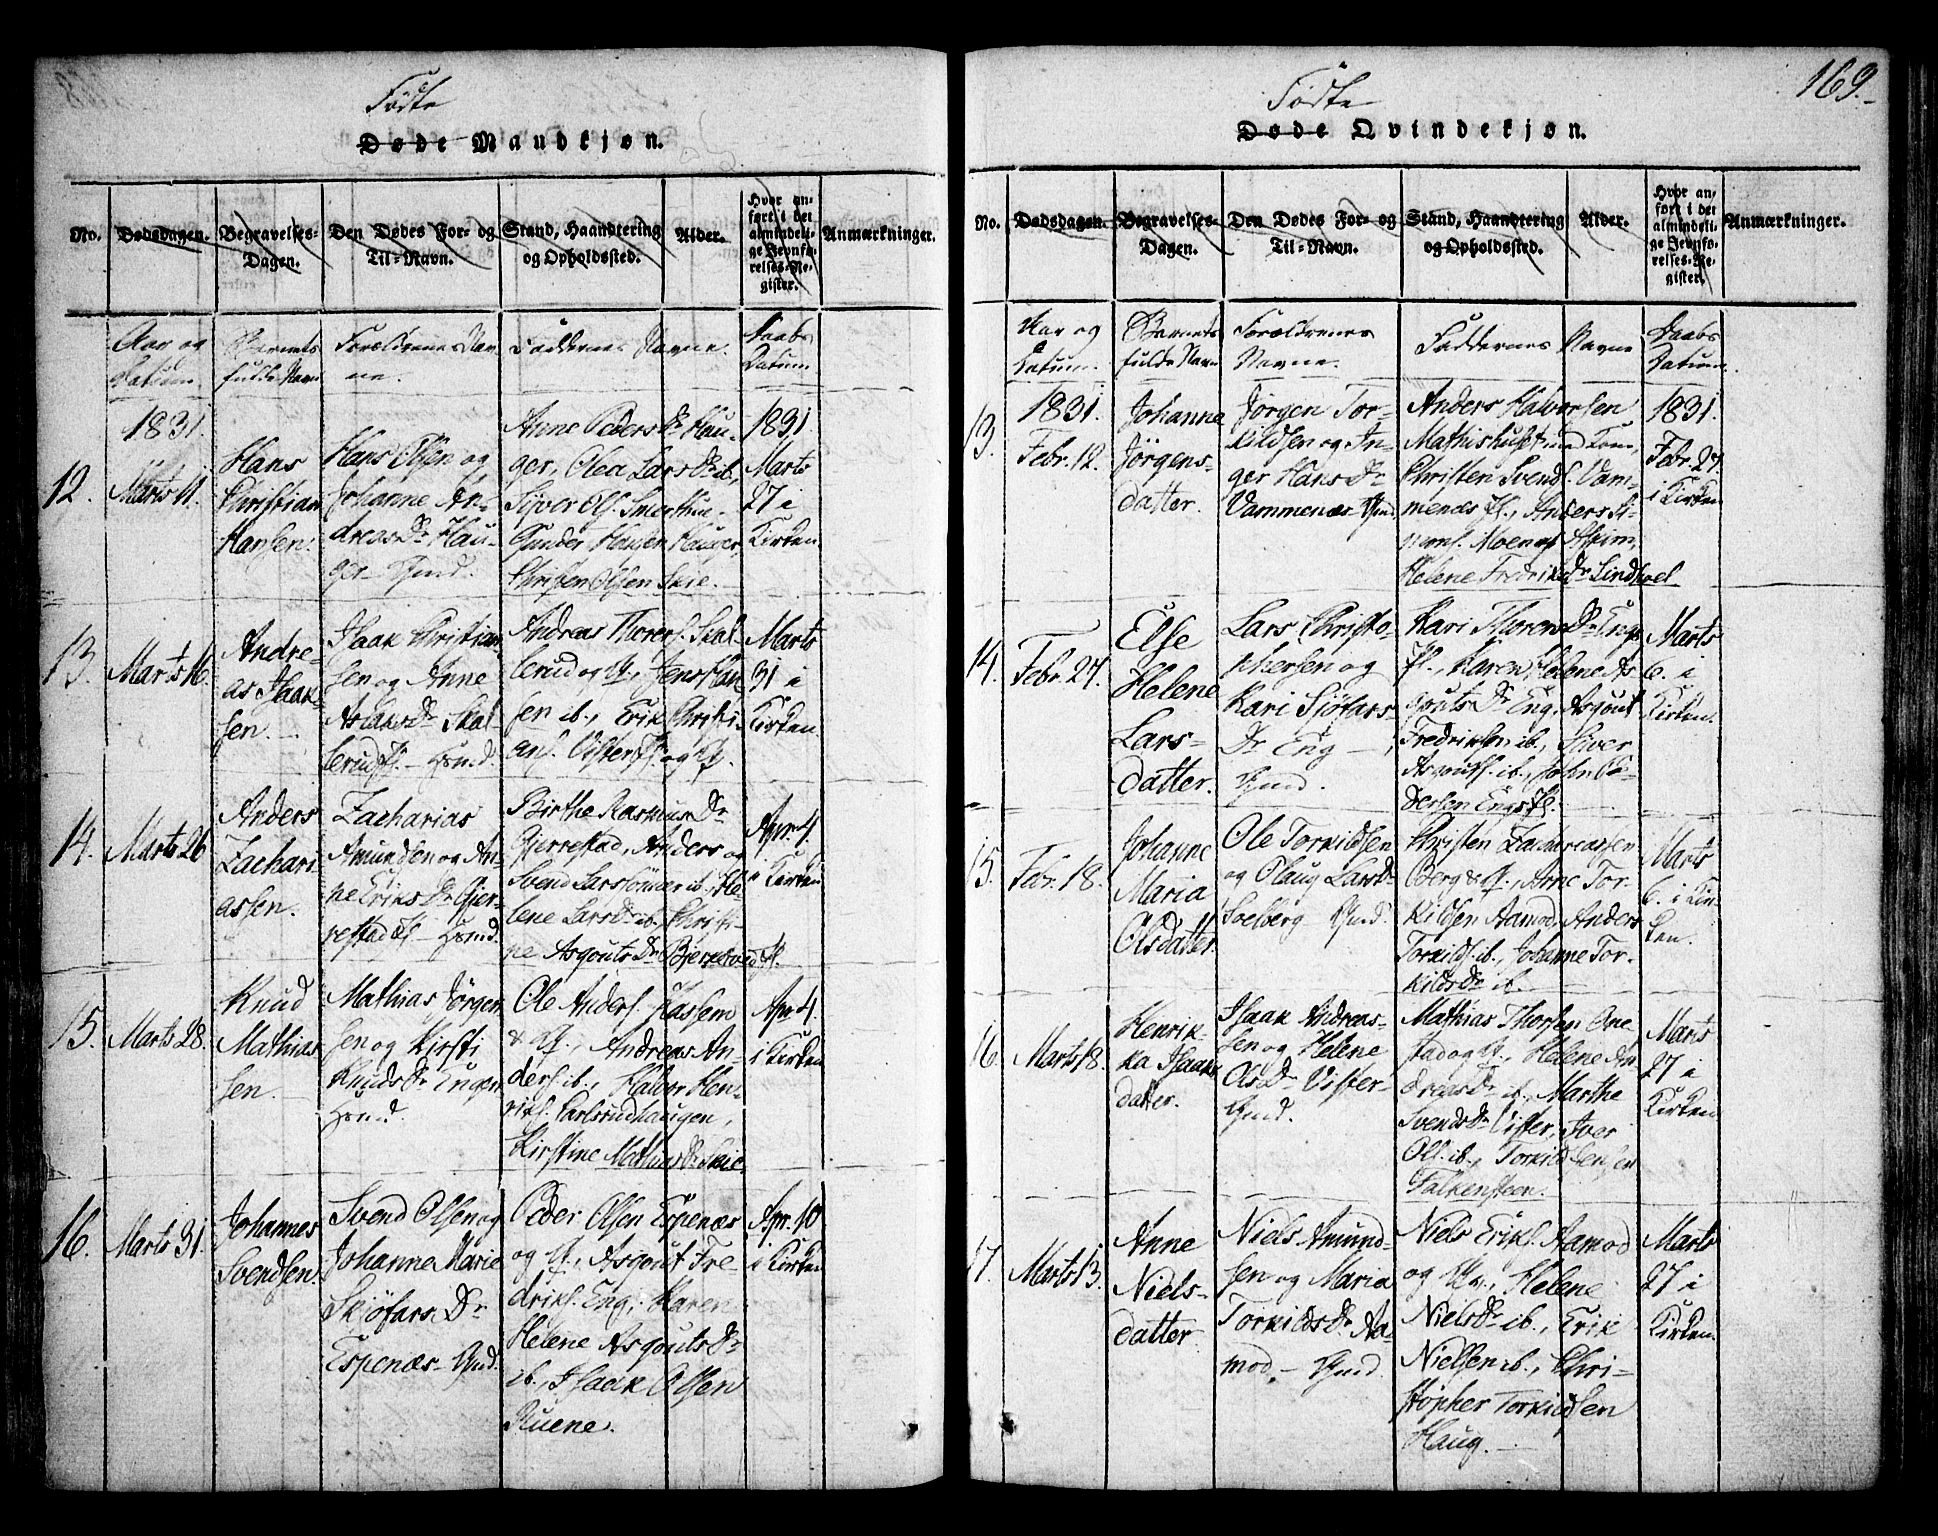 Födte
Døde Mandkjøn.
No.
Dødsdagen.
Begravelses-
Dagen.
Den Dødes For- og
Til-Navn.
Stand, Haandtering
og Opholdssted.
Alder.
Hvor an-
ført i det
almindeli-
ge Jevnfø-
relses-Re-
gister.
Anmærkninger.
Aar og
Datum.
Barnets
fulde Navn
Forældrenes Nav
ne.
Faddernes Navne.
Daabs
Datum
12.
1831.
Marts 11.
Hans
Christian
Hansen.
Hans Olsen og
Johanne An-
dreas Dr Hau-
ger
Anne Peders Dr Hau-
ger, Olea Lars Dr ib.,
Siver Ols.
Gunder Hansen Hauger,
Christen Olsen Skie.
1831
Marts
27 i
Kirken.
13.
Marts 16.
Andre-
as Isaak-
sen.
Isaak Christian
sen og Anne
Aslaks Dr Skol-
lerud
Andreas Thorers. Skol-
lerud og Hu, Jens Han
sen ib., Erik Christi-
ans. Vister
Marts
31 i
Kirken
14.
Marts 26
Anders
Zachari
assen.
Zacharias
Amundsen og An-
ne Eriks Dr Gjer-
restad
Birthe Rasmus Dr
Gjerrestad, Anders og
Svend Larssönner ib., He-
lene Lars Dr ib. Christi-
ne Asgouts Dr
Apr. 4.
i Kirken
15.
Marts 28.
Knud
Mathias
sen.
Mathias Jörgen
sen og Kirsti
Knuds Dr Enger
Ole Anders. Fassem
& Hu., Andreas An-
ders. ib., Halvor Hen-
riks. Carlsrudhaugen,
Kirstine Mathias Dr Skie
Apr. 4.
i Kirken
16.
Marts 31.
Johannes
Svendsen
Svend Olsen og
Johanne Marie
Skjöfars Dr
Espenæs
Peder Olsen Espenæs
og Hu, Asgout Fre-
driks. Eng, Karen
Helene Asgouts Dr
ib., Isaak Olsen
Ruene.
Apr. 10
i Kirken
169.
Födte
Døde Qvindekjøn.
No.
Dødsdagen.
Begravelses-
Dagen.
Den Dødes For- og
Til-Navn.
Stand, Haandtering
og Opholdssted.
Alder.
Hvor an-
ført i det
almindeli-
ge Jevnfø-
relses-Re-
gister.
Anmærkninger.
Aar og
Datum.
Barnets
fulde Navn
Forældrenes
Navne.
Faddernes Navne
Daabs
Datum.
13.
1831.
Febr. 12.
Johanne
Jörgens-
datter.
Jörgen Tor-
kildsen og In-
ger Hans Dr
Vammenæs
Anders Halvorsen
Christen Svends. Vam-
menes
Helene Fredriks Dr Lindhoel
1831.
Febr. 27
i Kirken
14.
Febr. 27.
Else
Helene
Lars-
datter.
Lars Christo-
phersen og
Kari Sjöfars-
Dr Eng
Kari Thorens Dr Engs
Karen Helene As-
gouts Dr Eng, Asgout
Fredriksen ib., Siver
Asgouts. ib., John Pe-
dersen Engs
Marts
6. i
Kirken.
15.
Febr. 18.
Johanne
Maria
Olsdatter.
Ole Torkildsen
og Olaug Lars Dr
Soelberg
Christen Zachariassen
Berg & Hu., Arne Tor-
kildsen Aamod, Anders
Torkilds. ib., Johanne Tor-
kilds Dr ib.
Marts
6. i Kir-
ken.
16.
Marts 18.
Henrik-
ka Isaaks
datter.
Isaak Andreas-
sen og Helene
Ols Dr Vister
Mathias Thorsen One-
stad og Hu, Helene An-
dreas Dr ib., Marthe
Svends Dr Vister, Iver
Ols. ib., Torkild Jensen
Falkensteen.
Marts
27 i
Kirken
17.
Marts 13.
Anne
Niels-
datter
Niels Amund-
sen og Maria
Torkilds Dr Aa-
mod.
Niels Eriks. Aamod
og Hu., Helene
Niels Dr ib., Erik
Nielsen ib., Chri-
stopher Torkildsen
Haug.
Marts
27 i
Kirken.